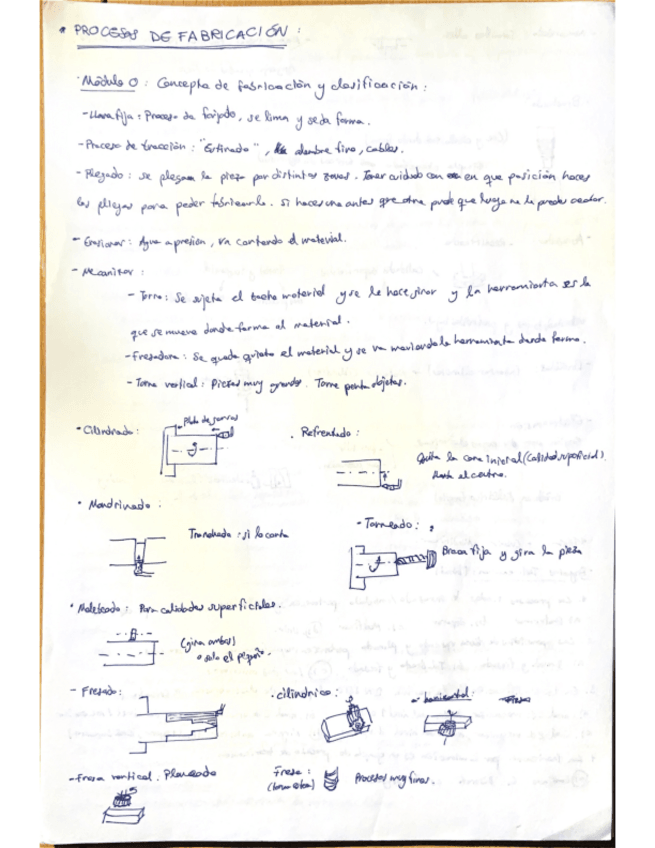 * PROCESOS DE FABRICACIÓN :
· Módulo 0 : Concepto de fabricación y clasificación :
- Llave fija : Proceso de forjado, se lima y se da forma.
- Proceso de tracción : "Estirado", alambre fino, cables.
- Plegado : se plegan la pieza por distintas zonas. Tener cuidado con en que posición haces
los pliegues para poder fabricarla. Si haces una antes que otra puede que luego no la puedas
- Erosionar : Agua a presión, va cortando el material.
- Mecanizar :
- Torno : Se sujeta el material y se le hace girar y la herramienta es la
que se mueve dando forma al material.
- Fresadora : Se queda quieto el material y se va moviendo la herramienta dando forma.
- Torno vertical : Piezas muy grandes. Torno objetos.
· Cilindrado :
Plato de garras
· Refrentado :
Quita la cara inicial (calidad superficial).
hasta el centro.
· Mandrinado :
Tronchado : si lo corta
- Torneado :
Broca fija y gira la pieza
· Moleteado : Para calidades superficiales.
(gira ambos)
o solo el
- Fresado :
· cilíndrico :
horizontal :
- Fresa vertical. Planeado
Fresa :
Procesos muy finos.